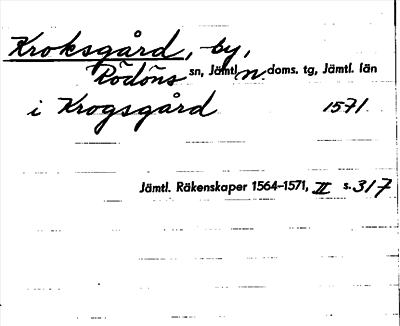 Kroksgård, by,
Rödöns sn, Jämtl. n. doms. tg, Jämtl. län
i Krogsgård 1571.
Jämtl. Räkenskaper 1564-1571, II s. 317